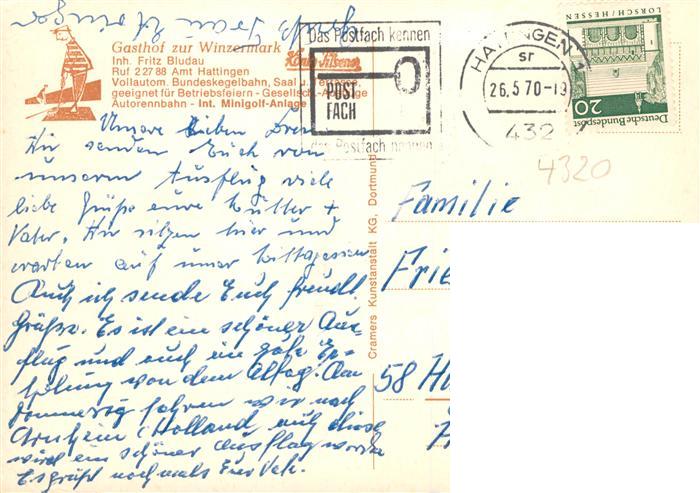 Gasthof zur Winzermark
Inh. Fritz Bludau
Ruf 22788 Amt Hattingen
König-Pilsener
Vollautom. Bundeskegelbahn, Saal u.
geeignet für Betriebsfeiern - Gesellsch.
Autorennbahn - Int. Minigolf-Anlage
Das Postfach kennen
POST
FACH
das Postfach nennen
HATTINGEN 1
sr
26.5.70-19
432
LORSCH/HESSEN
Deutsche Bundespost
20
4320
Unsere lieben
Wir senden Euch von
unserm Ausflug viele
liebe Grüße eure Mutter +
Vater. Wir sitzen hier und
warten auf unser Mittagessen
Auch ich sende Euch freundl.
Grüße. Es ist ein schöner Aus-
flug und auch eine gute Er-
holung von dem Alltag. Am
fahren wir nach
Arnheim (Holland, auch diese
wird ein schöner Ausflug werden
Es grüßt nochmals Euer Vater.
Cramers Kunstanstalt KG, Dortmund
Familie
Frie
58 H